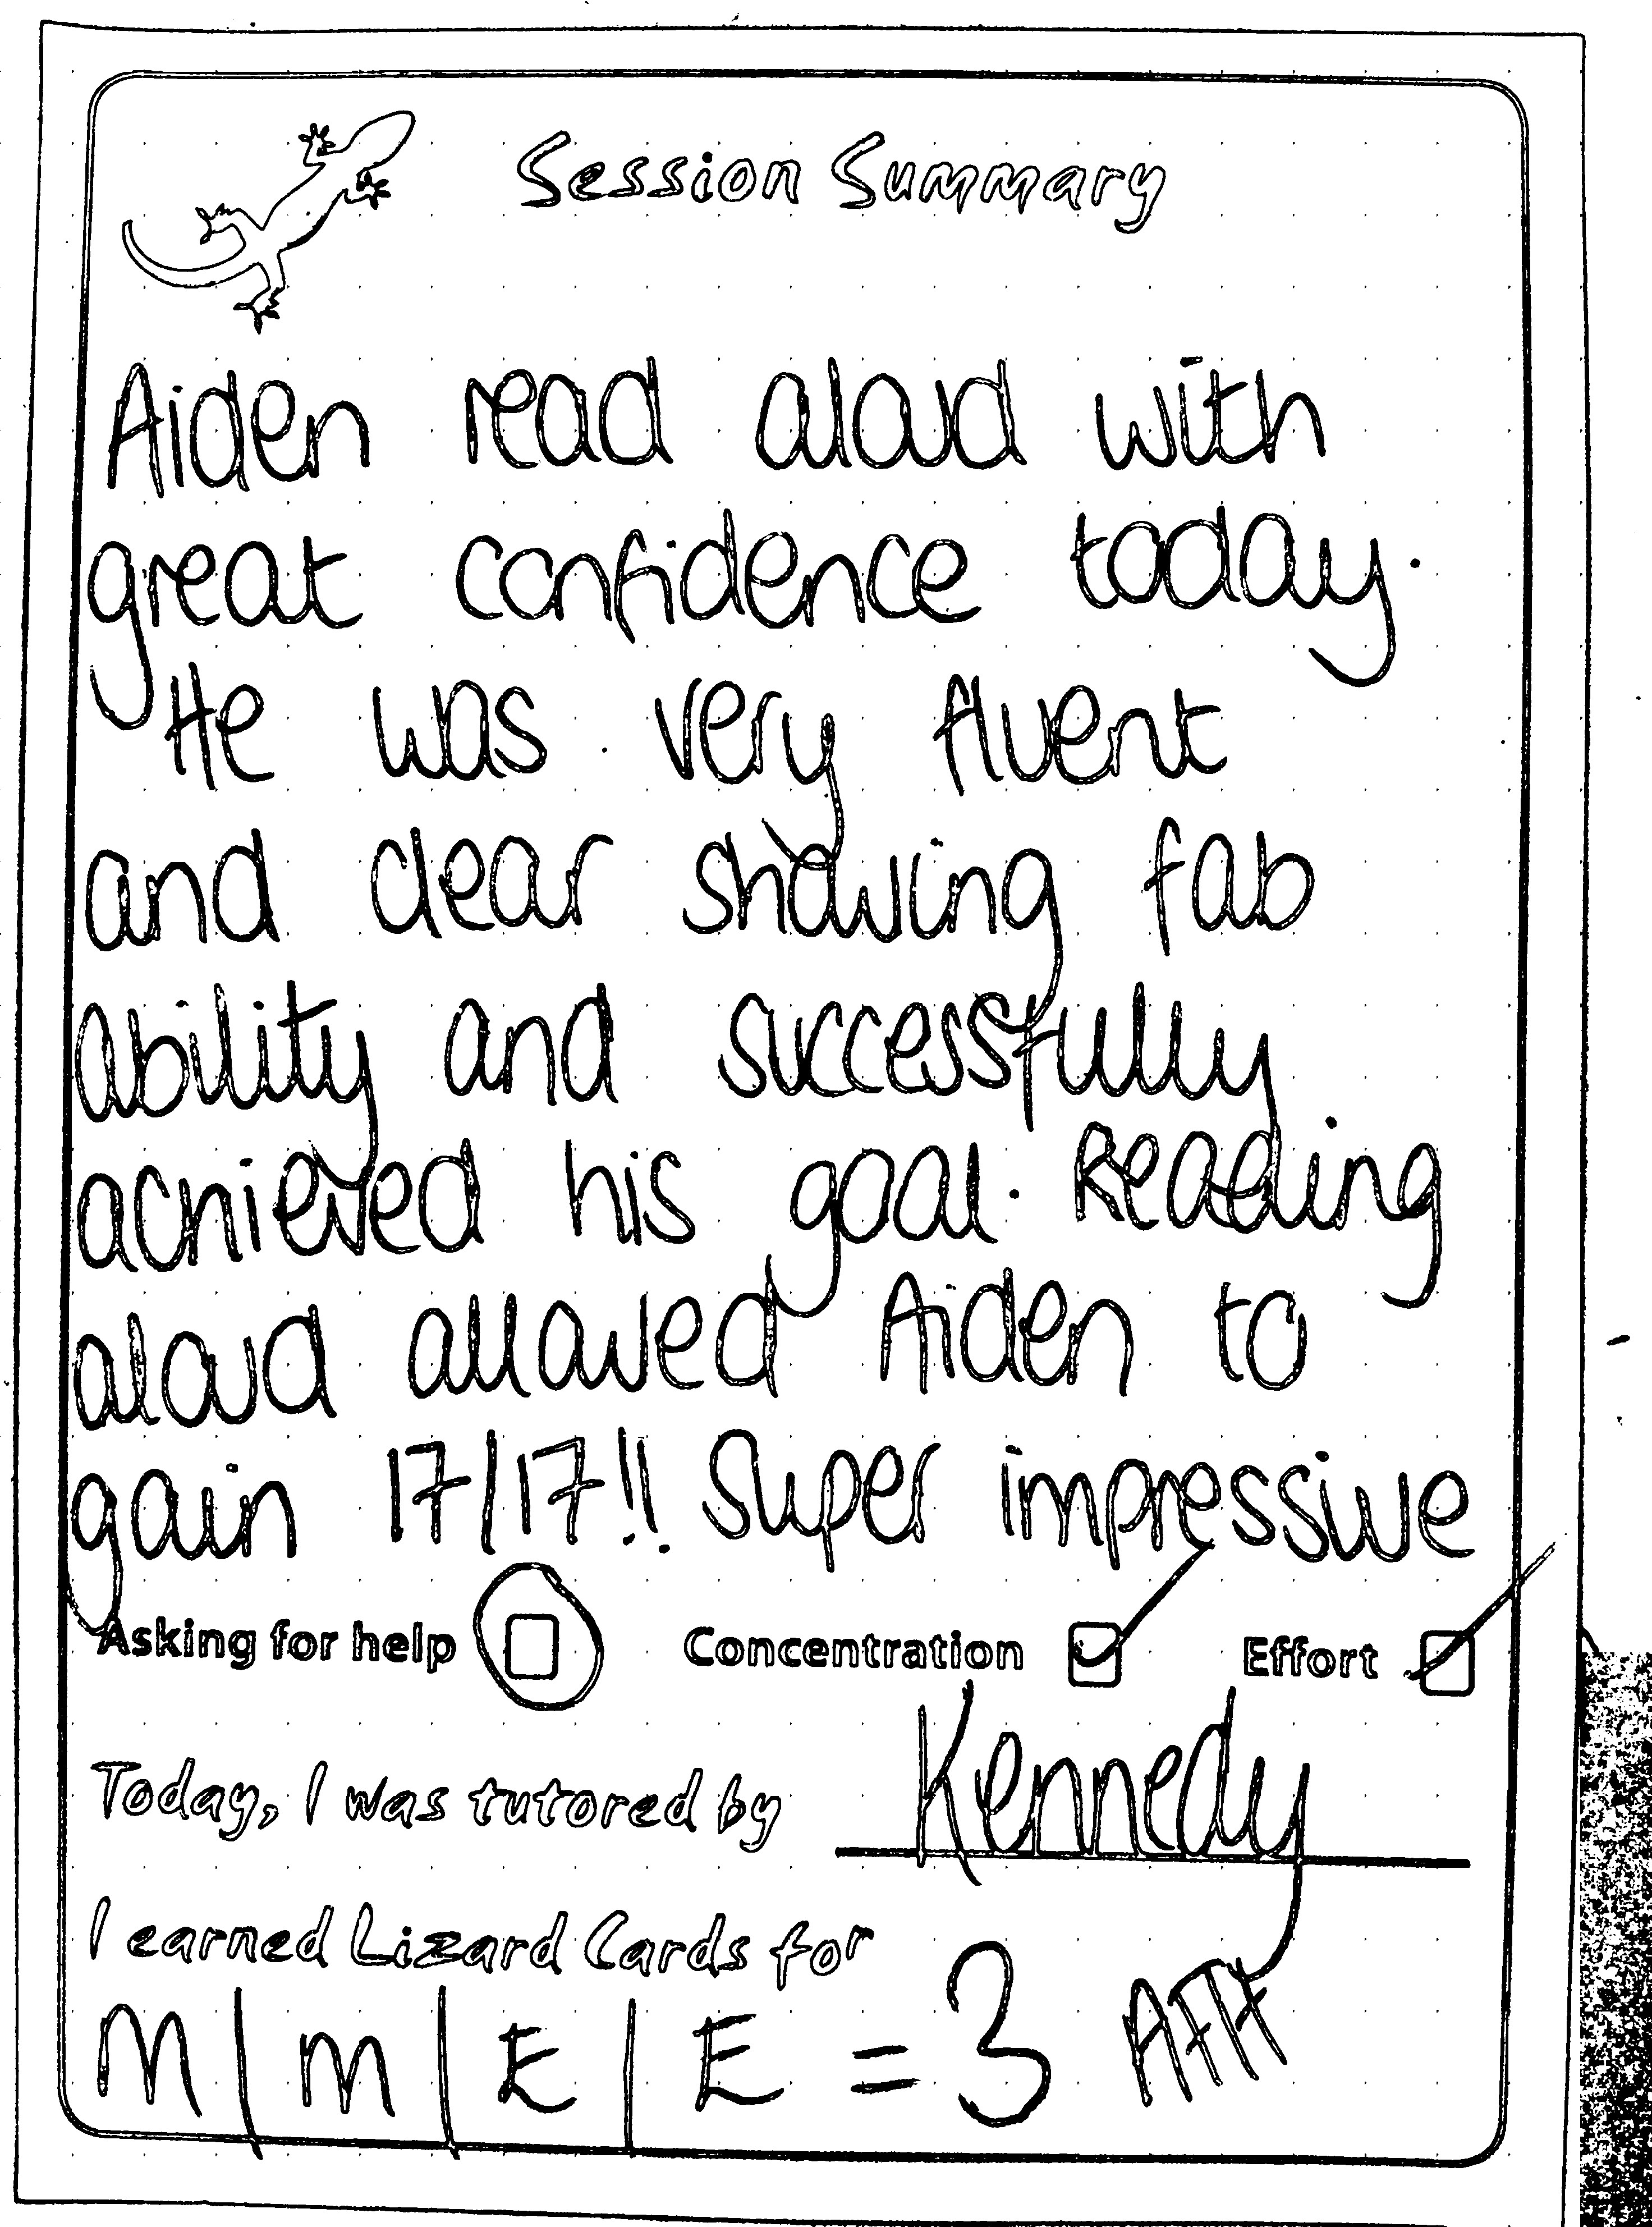 Session Summary
Aiden read aloud with
great confidence today.
He was very fluent
and clear showing fab
ability and successfully
achieved his goal. Reading
aloud allowed Aiden to
gain 17/17!! Super impressive
Asking for help Concentration Effort
Today, I was tutored by Kennedy
I earned Lizard Cards for
M | M | E | E = 3